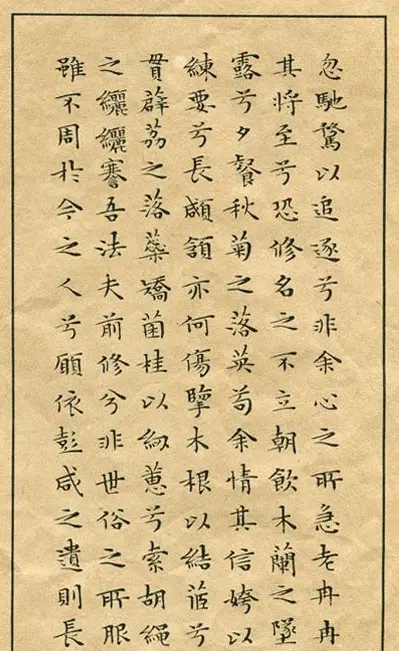 忽馳騖以追逐兮非余心之所急老冉冉
其將至兮恐修名之不立朝飲木蘭之墜
露兮夕餐秋菊之落英苟余情其信姱以
練要兮長顑頷亦何傷擥木根以結茝兮
貫薜荔之落蘂矯菌桂以紉蕙兮索胡繩
之纚纚謇吾法夫前修兮非世俗之所服
雖不周於今之人兮願依彭咸之遺則長